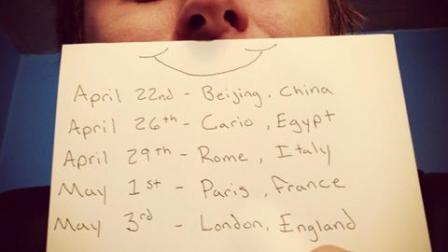 April 22nd - Beijing, China
April 26th - Cario, Egypt
April 29th - Rome, Italy
May 1st - Paris, France
May 3rd - London, England